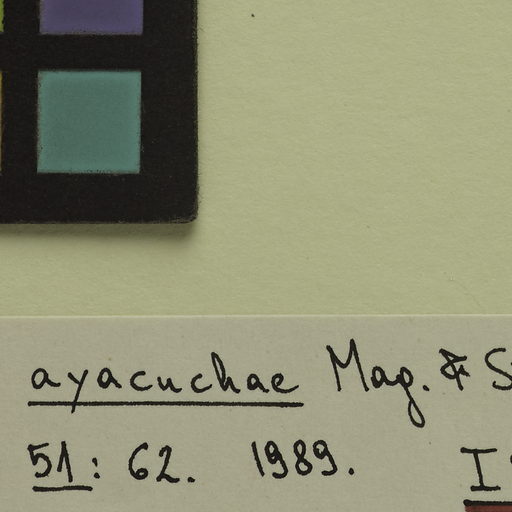 ayacuchae Mag. & S
51: 62. 1989. I